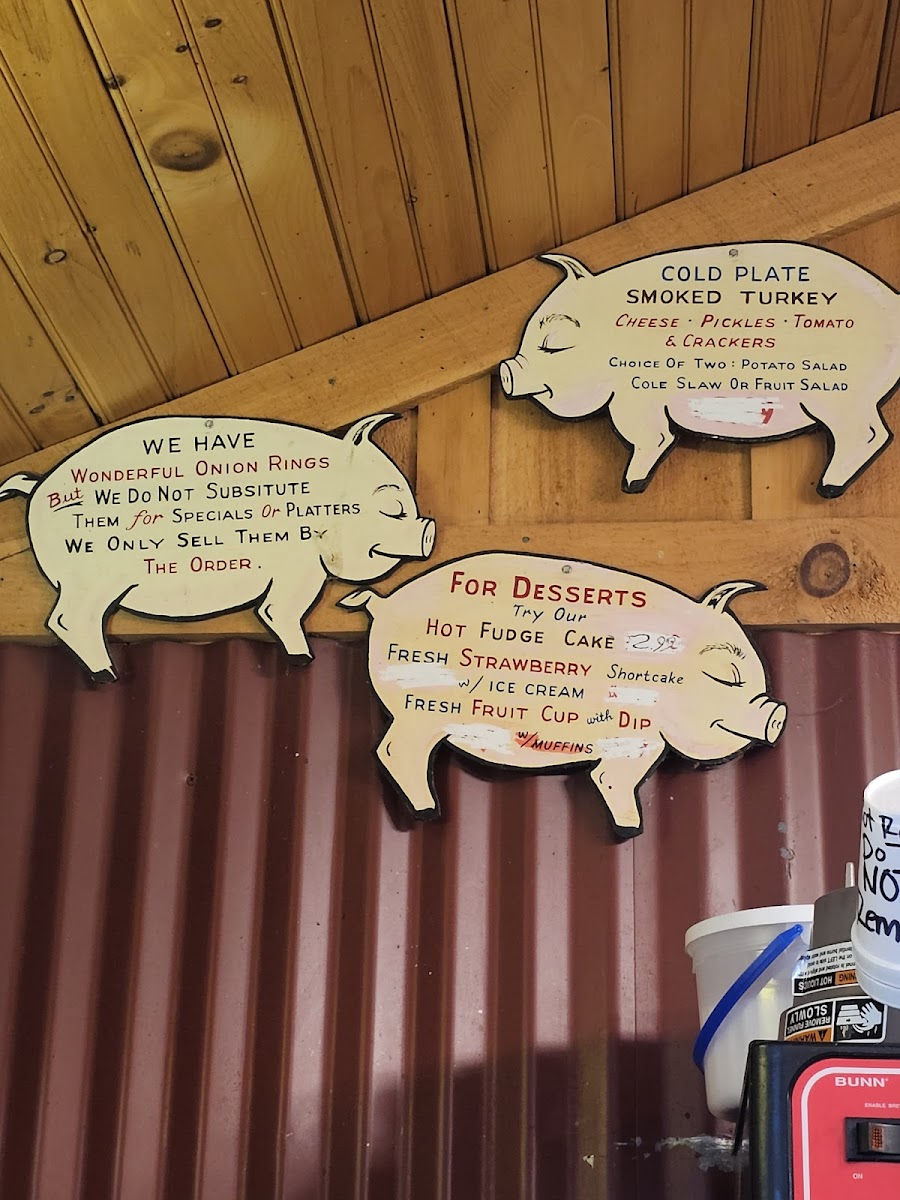 COLD PLATE
SMOKED TURKEY
CHEESE · PICKLES · TOMATO
& CRACKERS
CHOICE OF TWO : POTATO SALAD
COLE SLAW OR FRUIT SALAD
WE HAVE
WONDERFUL ONION RINGS
But WE DO NOT SUBSITUTE
THEM for SPECIALS Or PLATTERS
WE ONLY SELL THEM BY
THE ORDER.
FOR DESSERTS
Try Our
HOT FUDGE CAKE 2.99
FRESH STRAWBERRY Shortcake
w/ ICE CREAM
FRESH FRUIT CUP with DIP
w/MUFFINS
Do
NOT
HOT LIQUIDS
REMOVE FUNNEL
SLOWLY
BUNN
ON